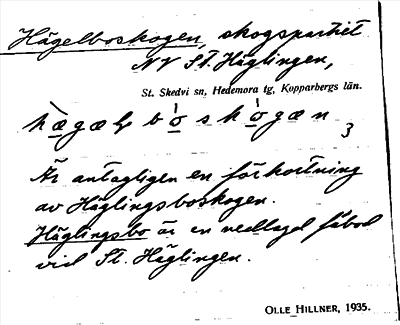 Hägelboskogen, skogspartiet
NV St. Häglingen,
St. Skedvi sn, Hedemora tg, Kopparbergs län.
hægæl bo skogæn 3
Är antagligen en förkortning
av Häglingsboskogen.
Häglingsbo är en nedlagd fäbod
vid St. Häglingen.
OLLE HILLNER, 1935.